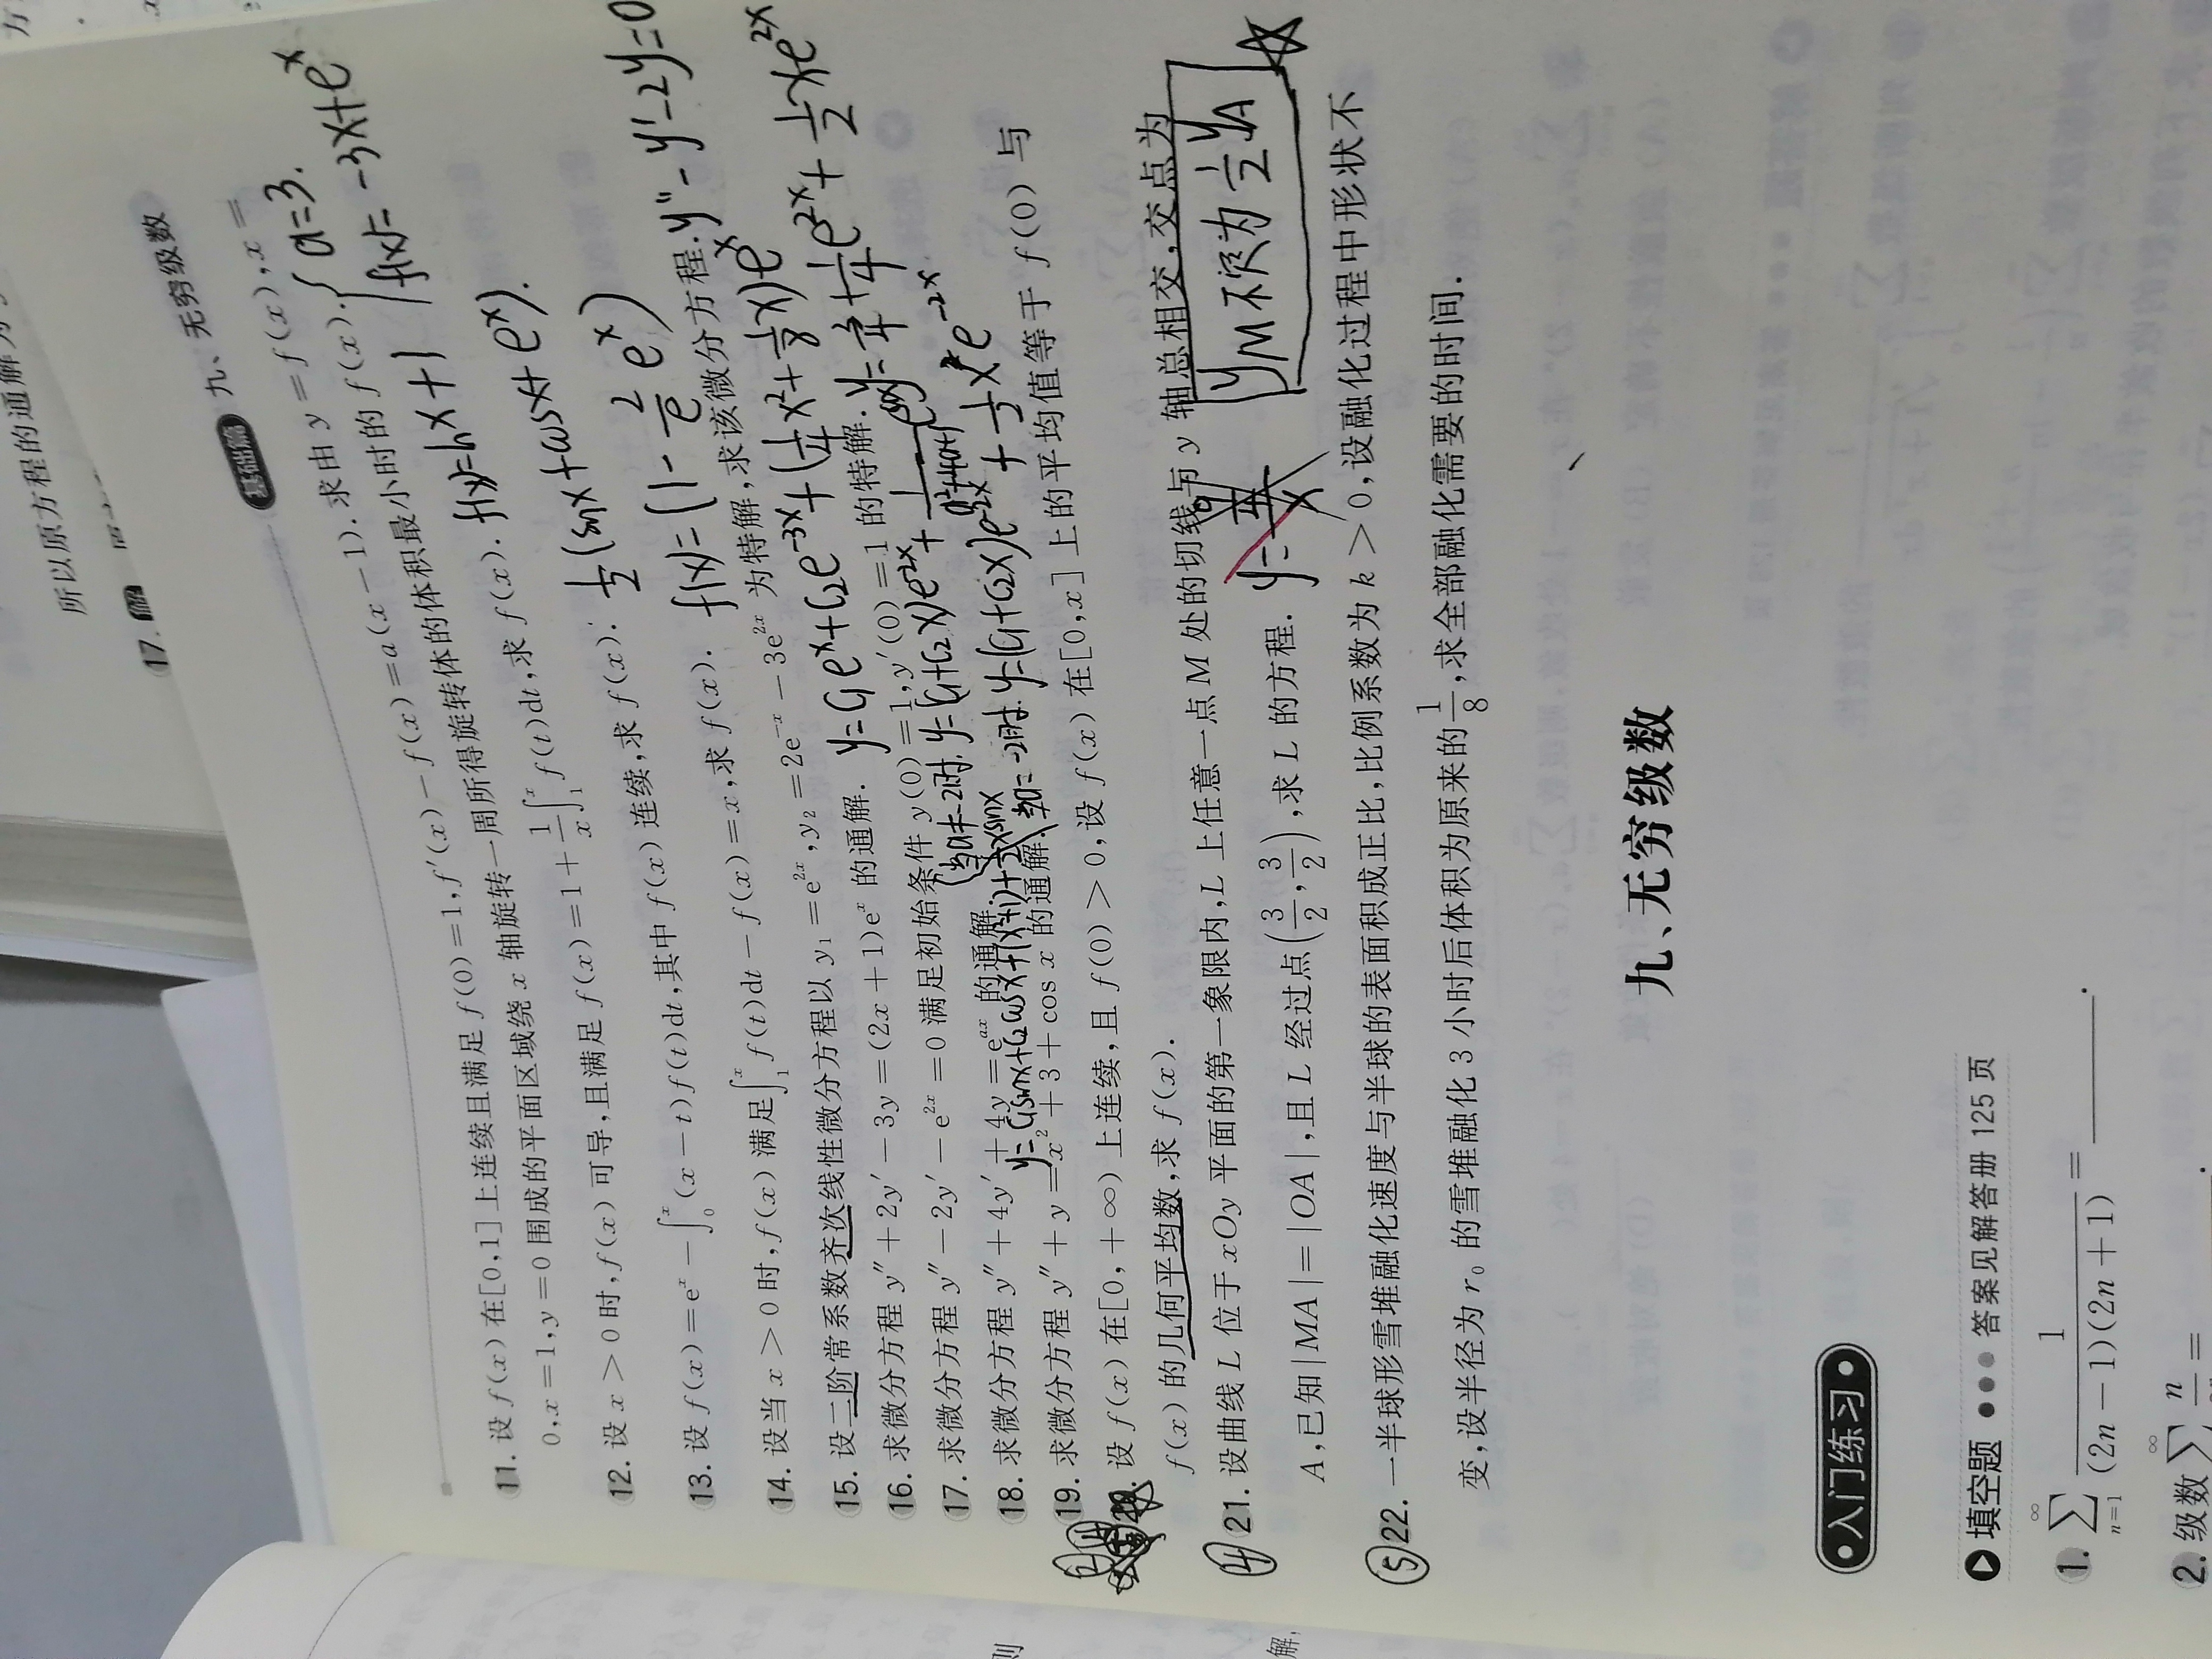 所以原方程的通解为
17. 解
九、无穷级数
基础篇
11. 设 f(x) 在[0,1]上连续且满足 f(0)=1,f′(x)-f(x)=a(x-1).求由 y=f(x),x=
0,x=1,y=0 围成的平面区域绕 x 轴旋转一周所得旋转体的体积最小时的 f(x). { a=3. f(x)=-3x+e^x
12. 设 x>0 时,f(x) 可导,且满足 f(x)=1+\frac{1}{x}∫_1^x f(t)dt,求 f(x). f(x)=ln x+1
13. 设 f(x)=e^x-∫_0^x (x-t)f(t)dt,其中 f(x) 连续,求 f(x). \frac{1}{2}(sinx+cosx+e^x).
14. 设当 x>0 时,f(x) 满足∫_1^x f(t)dt-f(x)=x,求 f(x). f(x)=(1-\frac{2}{e}e^x)
15. 设二阶常系数齐次线性微分方程以 y_1=e^{2x},y_2=2e^{-x}-3e^{2x} 为特解,求该微分方程. y″-y′-2y=0
16. 求微分方程 y″+2y′-3y=(2x+1)e^x 的通解. y=C_1e^x+C_2e^{-3x}+(\frac{1}{4}x^2+\frac{1}{8}x)e^x
17. 求微分方程 y″-2y′-e^{2x}=0 满足初始条件 y(0)=1,y′(0)=1 的特解. y=\frac{3}{4}+\frac{1}{4}e^{2x}+\frac{1}{2}xe^{2x}
18. 求微分方程 y″+4y′+4y=e^{ax} 的通解.
19. 求微分方程 y″+y=x^2+3+cos x 的通解. y=C_1sinx+C_2cosx+(x^2+1)+\frac{1}{2}xsinx
当a=-2时. y=(C_1+C_2x)e^{-2x}+\frac{1}{2}x^2e^{-2x}
设 f(x) 在[0,+∞) 上连续,且 f(0)>0,设 f(x) 在[0,x]上的平均值等于 f(0) 与
f(x) 的几何平均数,求 f(x).
④ 21. 设曲线 L 位于 xOy 平面的第一象限内,L 上任意一点 M 处的切线与 y 轴总相交,交点为
A,已知|MA|=|OA|,且 L 经过点(\frac{3}{2},\frac{3}{2}),求 L 的方程.
y_M不恒为\frac{1}{2}y_A
⑤ 22. 一半球形雪堆融化速度与半球的表面积成正比,比例系数为 k>0,设融化过程中形状不
变,设半径为 r_0 的雪堆融化 3 小时后体积为原来的\frac{1}{8},求全部融化需要的时间.
九、无穷级数
入门练习
填空题 答案见解答册 125 页
1. ∑_{n=1}^∞ \frac{1}{(2n-1)(2n+1)}=______.
2. 级数∑